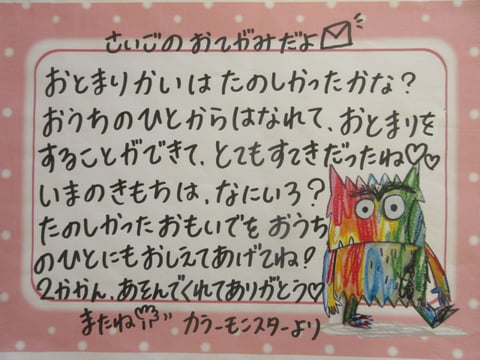 さいごの おてがみだよ
おとまりかいは たのしかったかな?
おうちのひとからはなれて、おとまりを
することができて、とてもすてきだったね♡♡
いまのきもちは、なにいろ?
たのしかったおもいでを おうち
のひとにもおしえてあげてね!
2かかん、あそんでくれてありがとう♡
またね カラーモンスターより